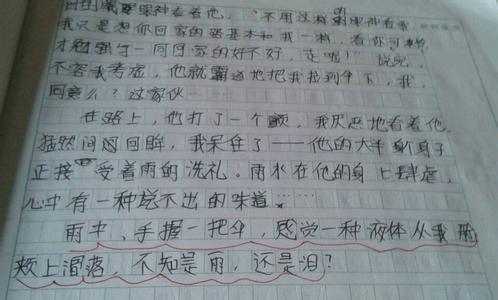 眼神看着他，“不用这样的眼神看我，
我只是想你回家的路基本和我一样，看你可怜
才勉强与一同回家的好不好，走啦！”说完，
不容我考虑，他就霸道地把我拉到伞下，我，
同意么？这家伙…
在路上，他打了一个颤，我厌恶地看着他
猛然间回眸，我呆住了——他的大半身子
正接受着雨的洗礼。雨水在他的身上肆虐，
心中有一种说不出的味道……
雨中，手握一把伞，感觉一种液体从我脸
颊上滑落，不知是雨，还是泪？